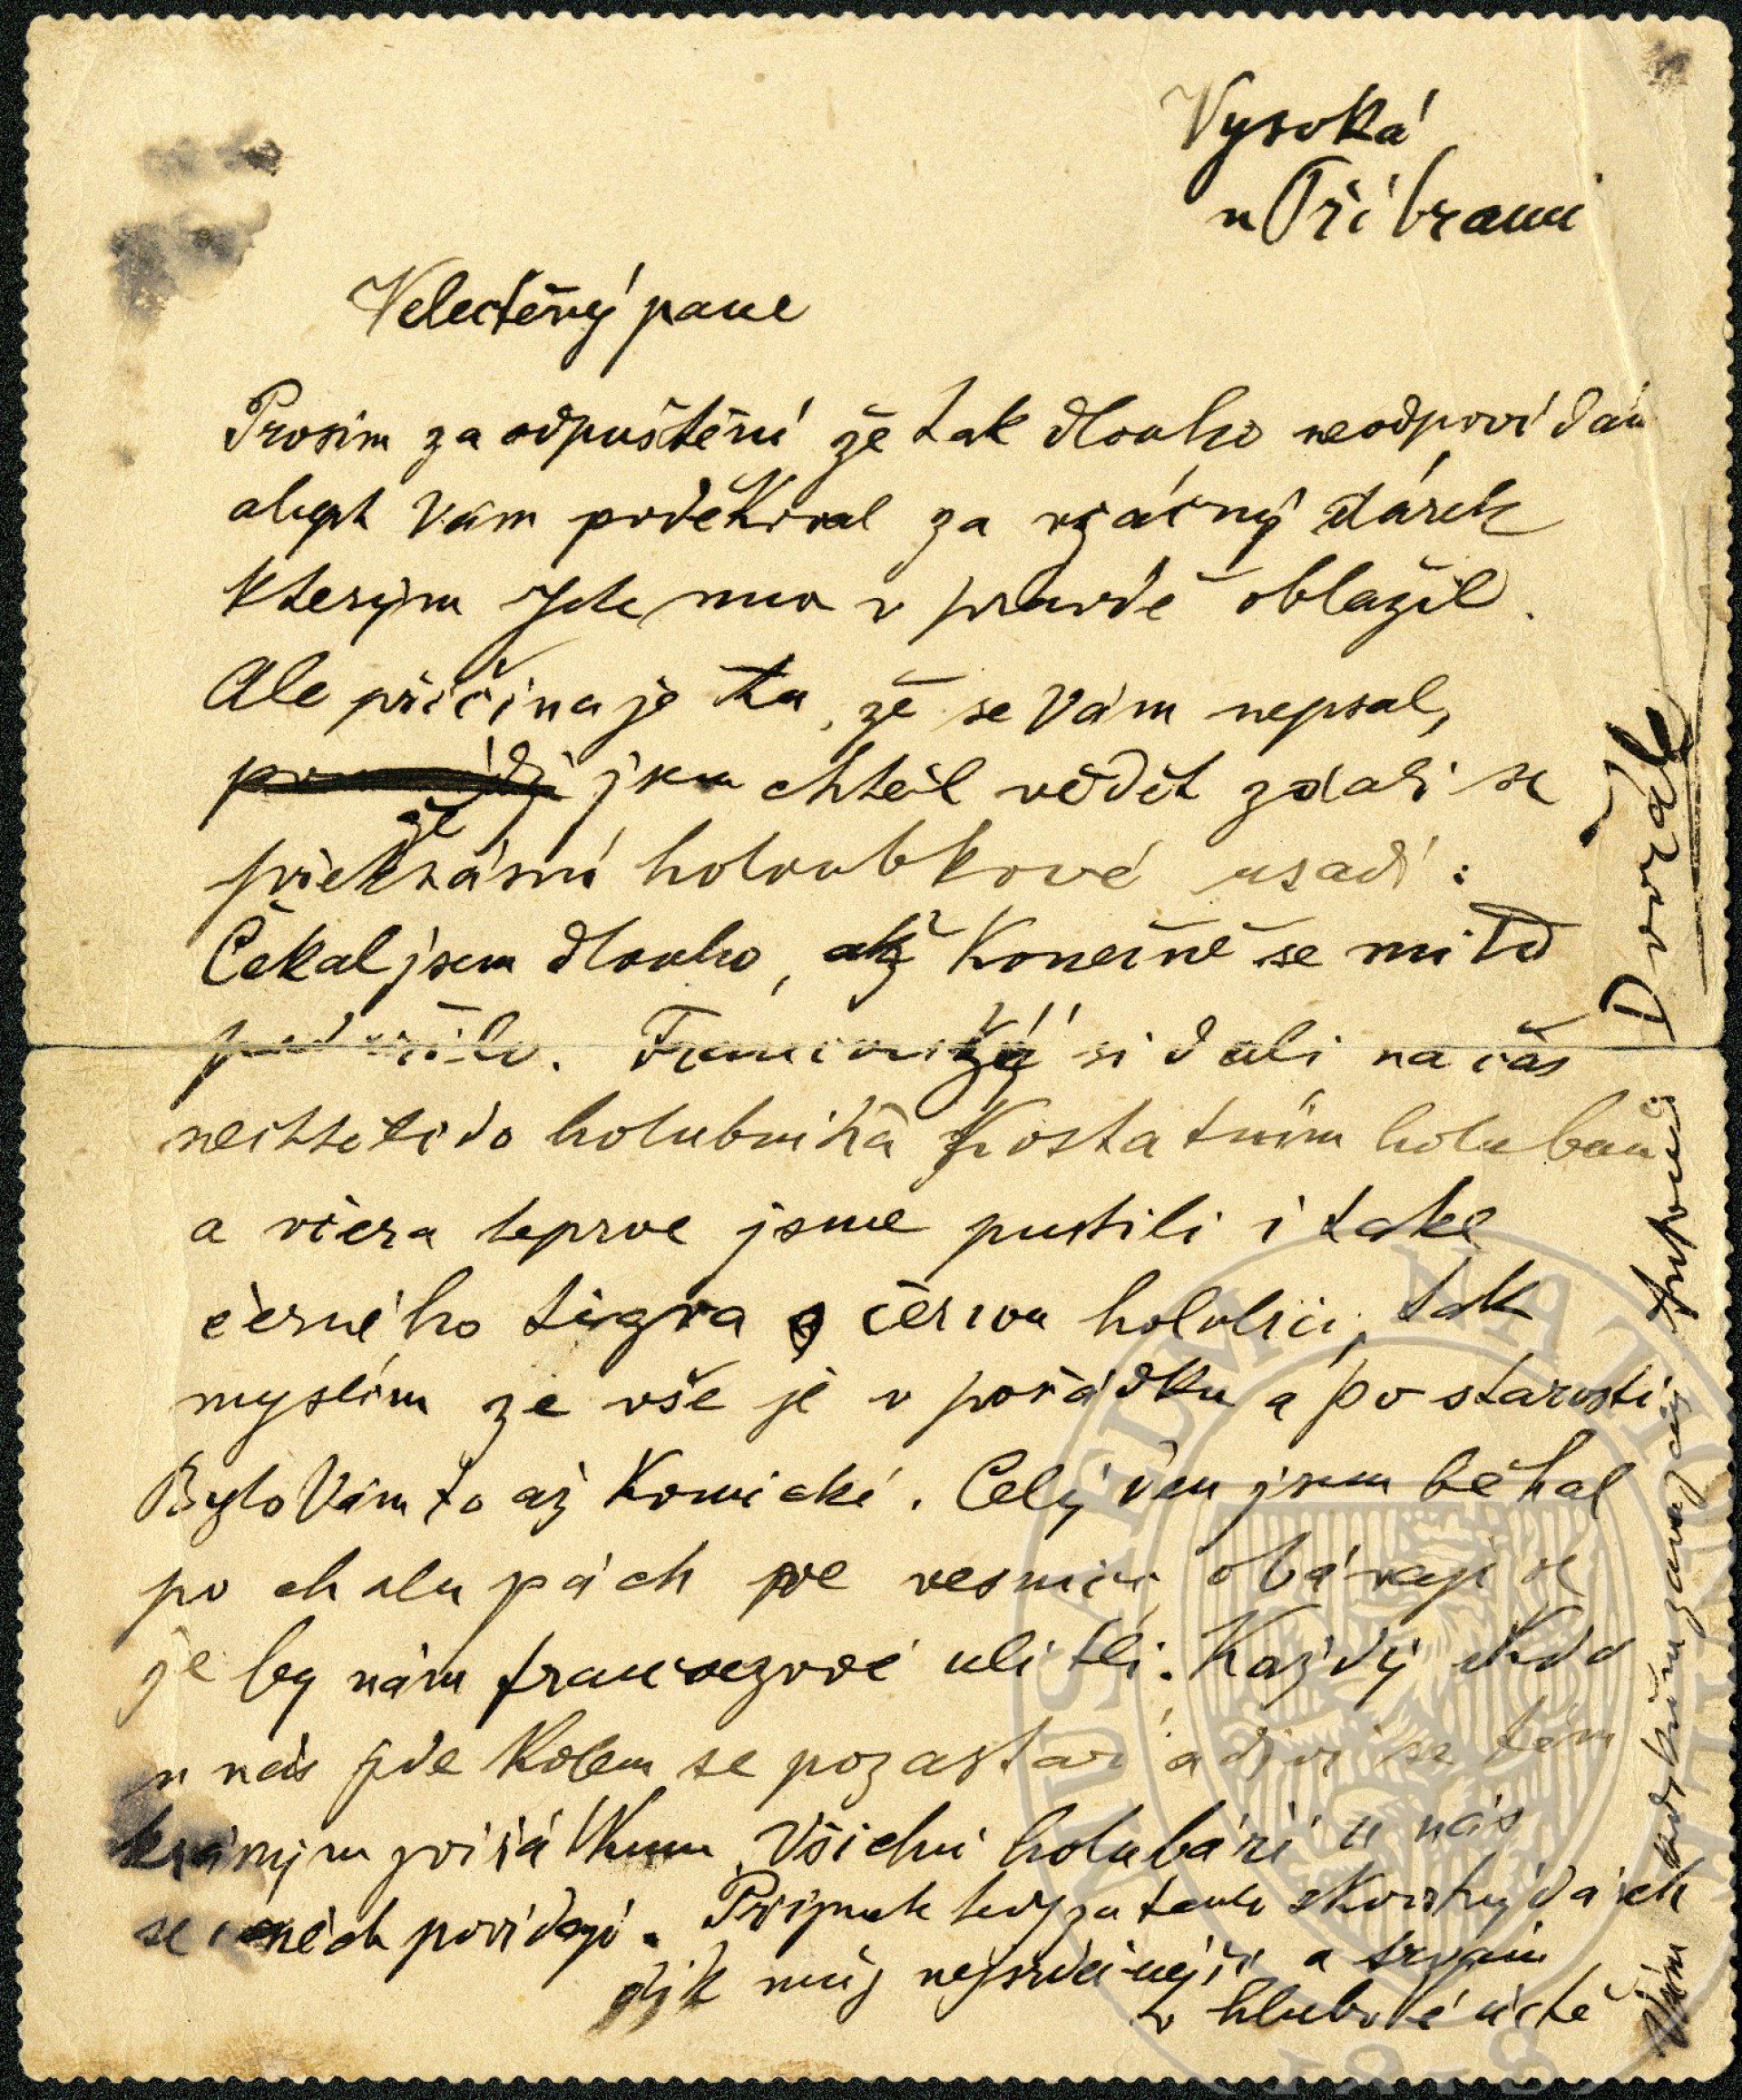 Vysoká
u Příbrami
Velectěný pane
Prosím za odpuštění že tak dlouho neodpovídám
abych Vám poděkoval za vzácný dárek
kterým jste mne v pravdě oblažil.
Ale příčina je ta, že se Vám nepsal,
že jsem chtěl vědět zdali se
překrásní holoubkové usadí:
Čekal jsem dlouho, až konečně se mi to
podařilo. Francouzká si dali na čas
nechtěli do holubníka k ostatním holubům
a včera teprve jsme pustili i také
černého tigra a černou holubici, tak
myslím že vše je v pořádku a po starosti
Bylo Vám to až komické. Celý den jsem běhal
po chalupách ve vesnici obávaje se
že by nám francouzové ulítli. Každý kdo
u nás jde kolem se pozastaví a diví se těm
krásným zvířátkum. Všichni holubáři u nás
se o nich povídají. Přijměte tedy za tento skvostný dárek
dík můj nejsrdečnější a
v hluboké úctě
Vám oddaným
Antonín
Dvořák